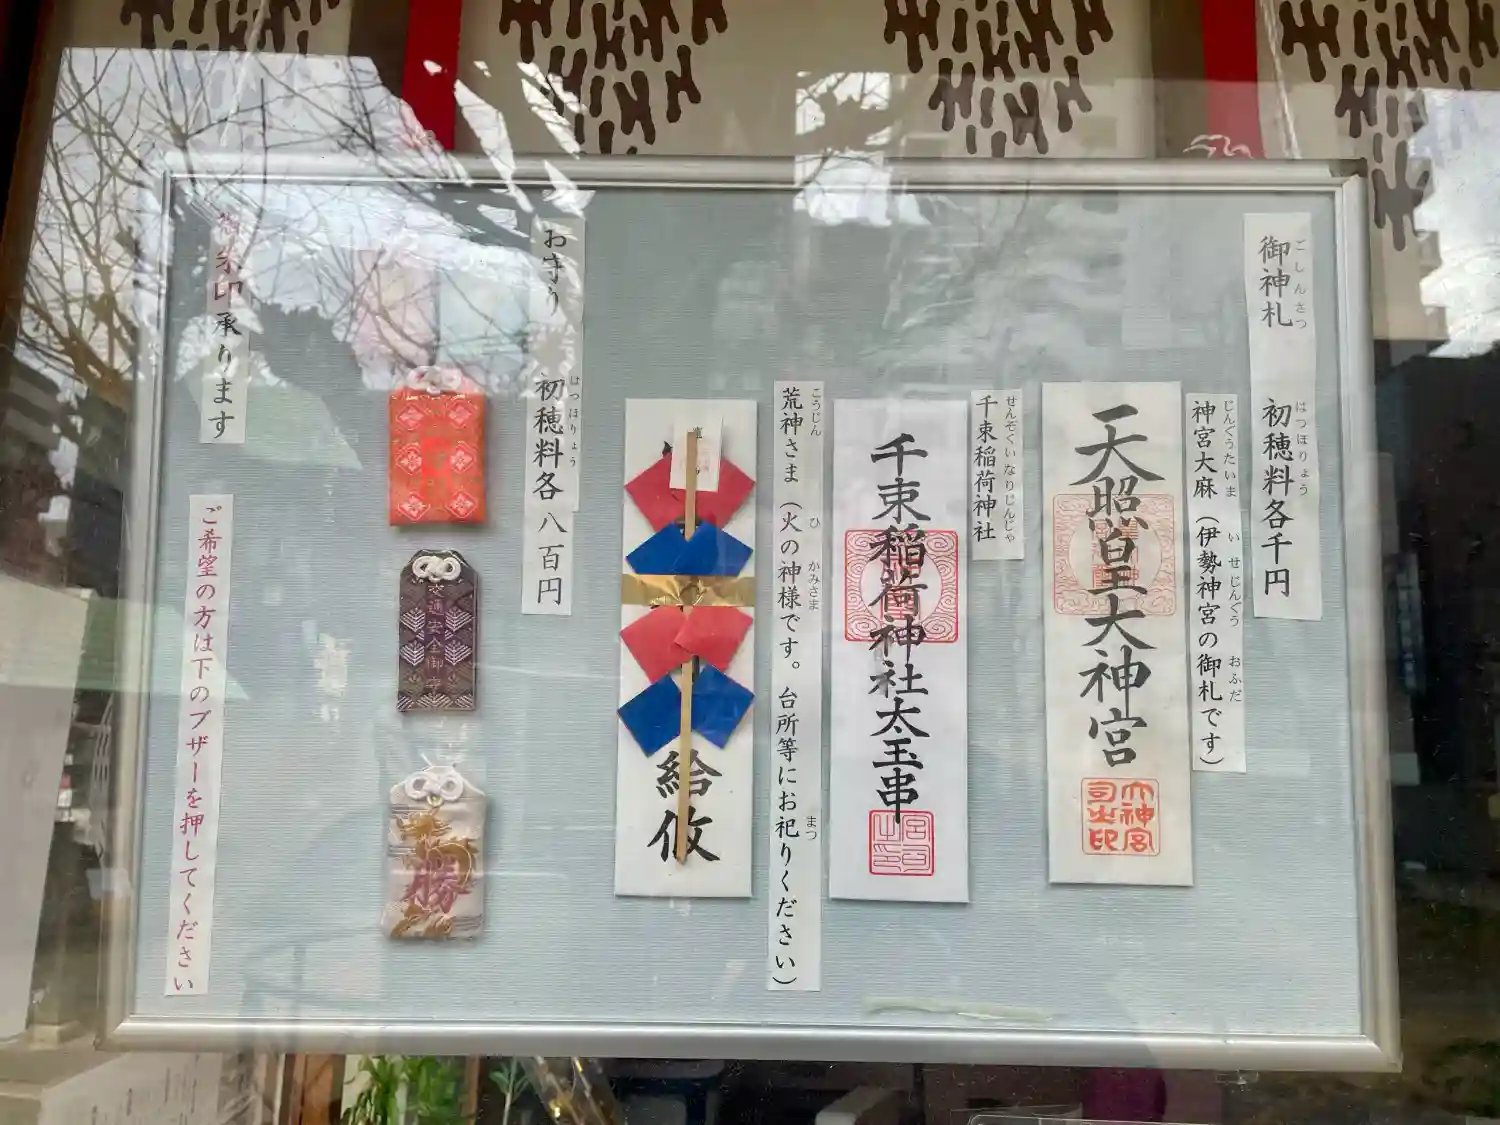 御神札 初穂料各千円
ごしんさつ はつほりょう
神宮大麻(伊勢神宮の御札です)
じんぐうたいま いせじんぐう おふだ
天照皇大神宮
大神宮司之印
千束稲荷神社
せんぞくいなりじんじゃ
千束稲荷神社太玉串
荒神さま(火の神様です。台所等にお祀りください)
こうじん ひ かみさま まつ
給攸
お守り 初穂料各八百円
はつほりょう
交通安全御守
勝
御朱印承ります
ご希望の方は下のブザーを押してください